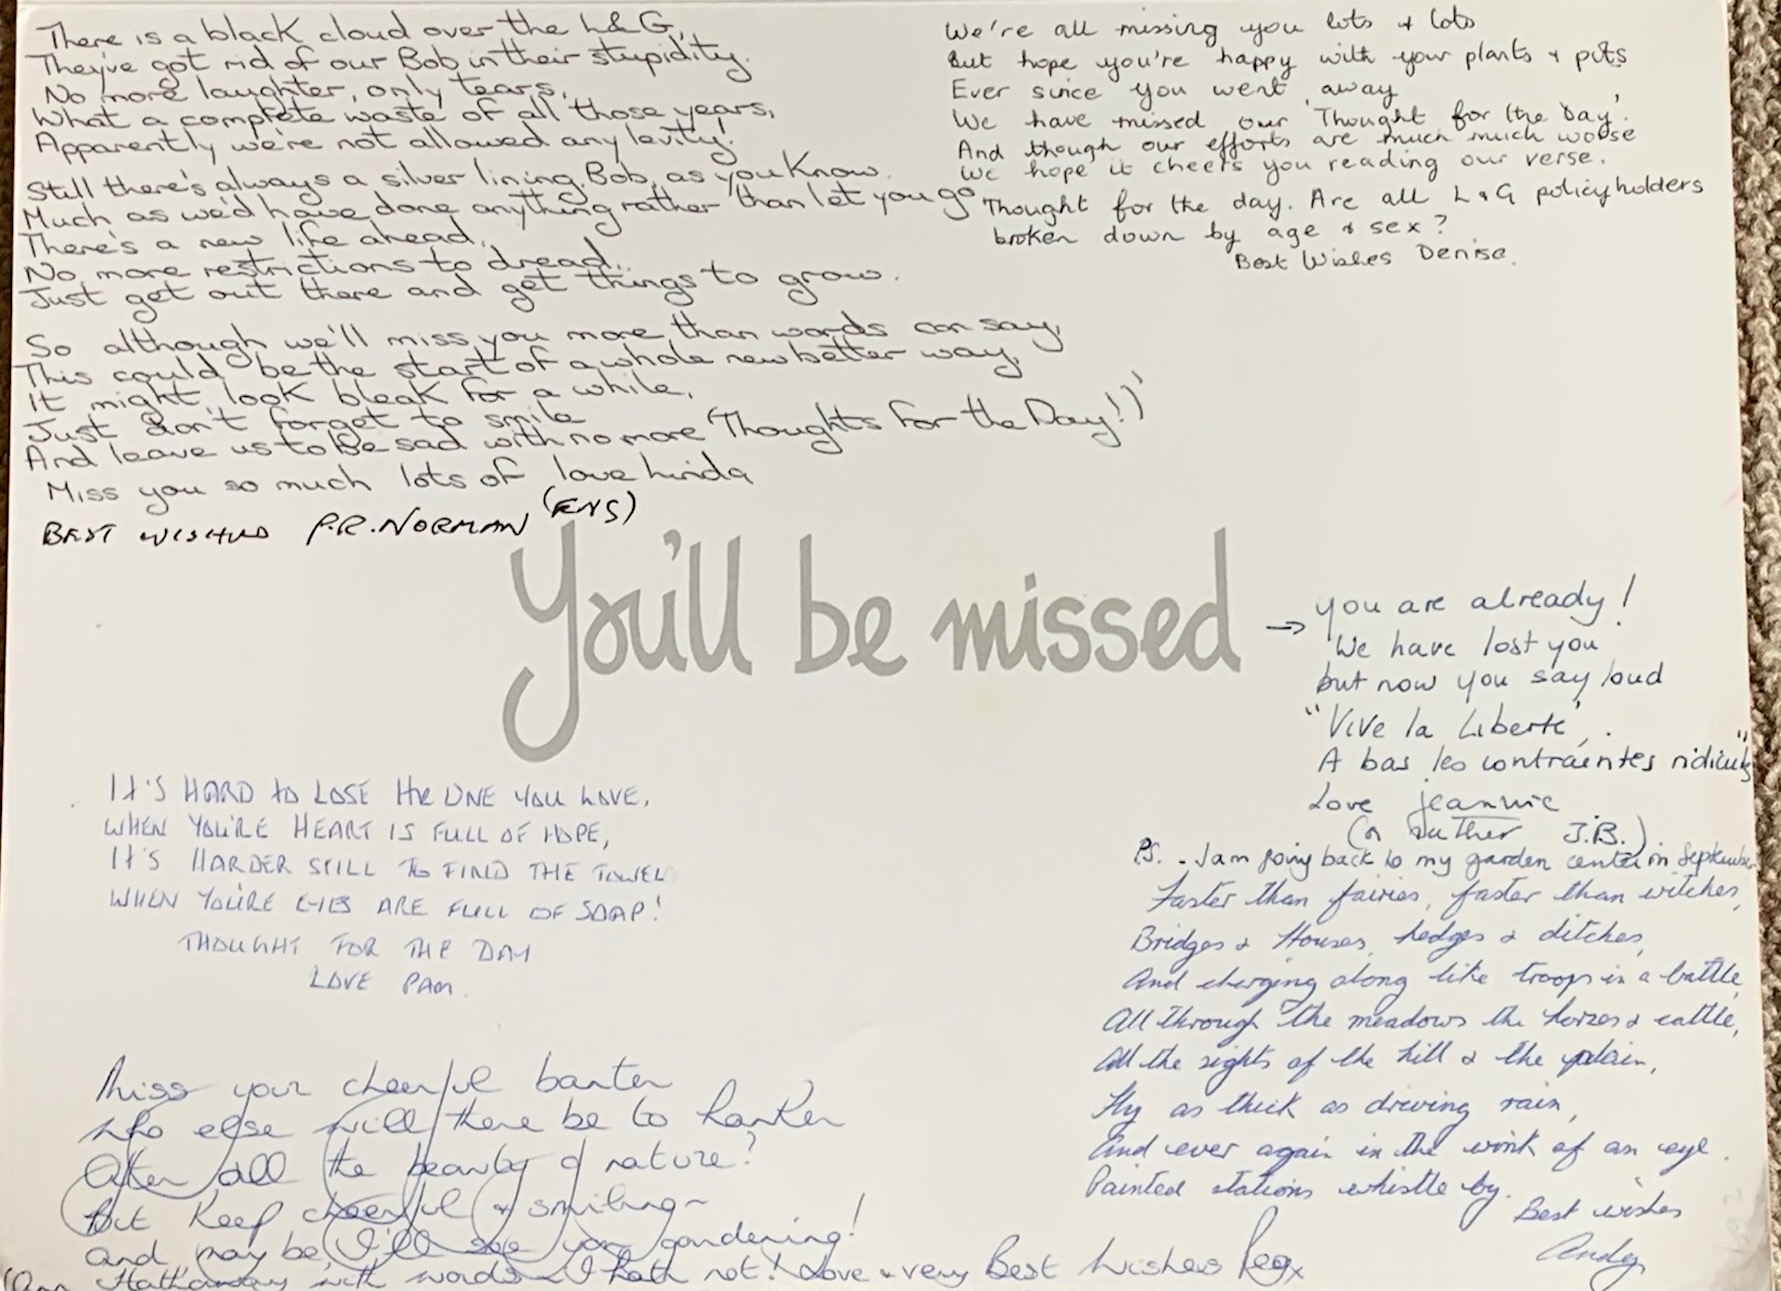 There is a black cloud over the L&G,
They've got rid of our Bob in their stupidity.
No more laughter, only tears,
What a complete waste of all those years,
Apparently we're not allowed any levity!
Still there's always a silver lining, Bob, as you know.
Much as we'd have done anything rather than let you go
There's a new life ahead,
No more restrictions to dread,
Just get out there and get things to grow.
So although we'll miss you more than words can say,
This could be the start of a whole new better way,
It might look bleak for a while,
Just don't forget to smile
And leave us to be sad with no more 'Thoughts for the Day!)'
Miss you so much lots of love Linda
BEST WISHES P.R. NORMAN (ENS)
We're all missing you lots & lots
But hope you're happy with your plants & pots
Ever since you went away
We have missed our 'Thought for the Day'.
And though our efforts are much much worse
We hope it cheers you reading our verse.
Thought for the day. Are all L & G policyholders
broken down by age & sex?
Best Wishes Denise.
You'll be missed
→ you are already!
We have lost you
but now you say loud
"Vive la Liberté,
A bas les contraintes ridicules"
Love Jeannie
(n other J.B.)
P.S. - I am going back to my garden center in September
IT'S HARD TO LOSE THE ONE YOU LOVE,
WHEN YOU'RE HEART IS FULL OF HOPE,
IT'S HARDER STILL TO FIND THE TOWEL
WHEN YOU'RE EYES ARE FULL OF SOAP!
THOUGHT FOR THE DAY
LOVE PAM.
Faster than fairies, faster than witches,
Bridges & Houses, hedges & ditches,
And charging along like troops in a battle,
All through the meadows the horses & cattle,
All the sights of the hill & the plain,
Fly as thick as driving rain,
And ever again in the wink of an eye.
Painted stations whistle by.
Best wishes
Andy
Miss your cheerful banter
who else will there be to hanker
After all the beauty of nature?
But keep cheerful & smiling ~
and may be I'll see you gardening!
(Ann Hathaway with words - I hath not! Love & very Best Wishes Peg x